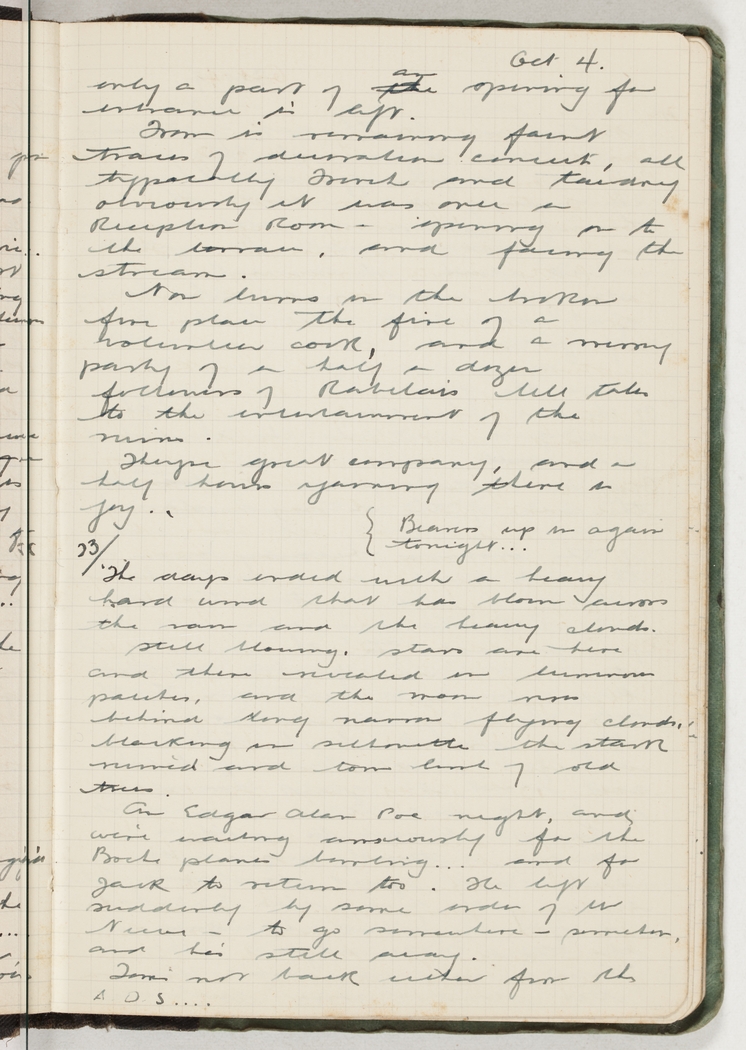 Oct 4.
only a part of an opening for
entrance is left.
From is remaining faint
traces of decoration conceit, all
typically French and tawdry
obviously it was once a
Reception Room – opening on to
the terrace, and facing the
stream.
Now burns in the broken
fire place the fire of a
volunteer cook, and a merry
party of a half a dozen
followers of Rabelais tell tales
to the entertainment of the
ruins.
Theyre great company, and a
half hours yarning there is
joy..
Bearers up in again
tonight...
23/
The days ended with a heavy
hard wind that has blown across
the rain and the heavy clouds.
Still blowing. stars are here
and there revealed in luminous
patches, and the moon
behind long narrow flying clouds,
blacking in silhouette the stark
ruined and torn limb of old
trees.
An Edgar Alan Poe night, and
we're waiting anxiously for the
Boche planes bombing... and for
Jack to return too. He left
suddenly by some order of
– to go somewhere –
and he's still away.
Tom's not back either from the
A D S....